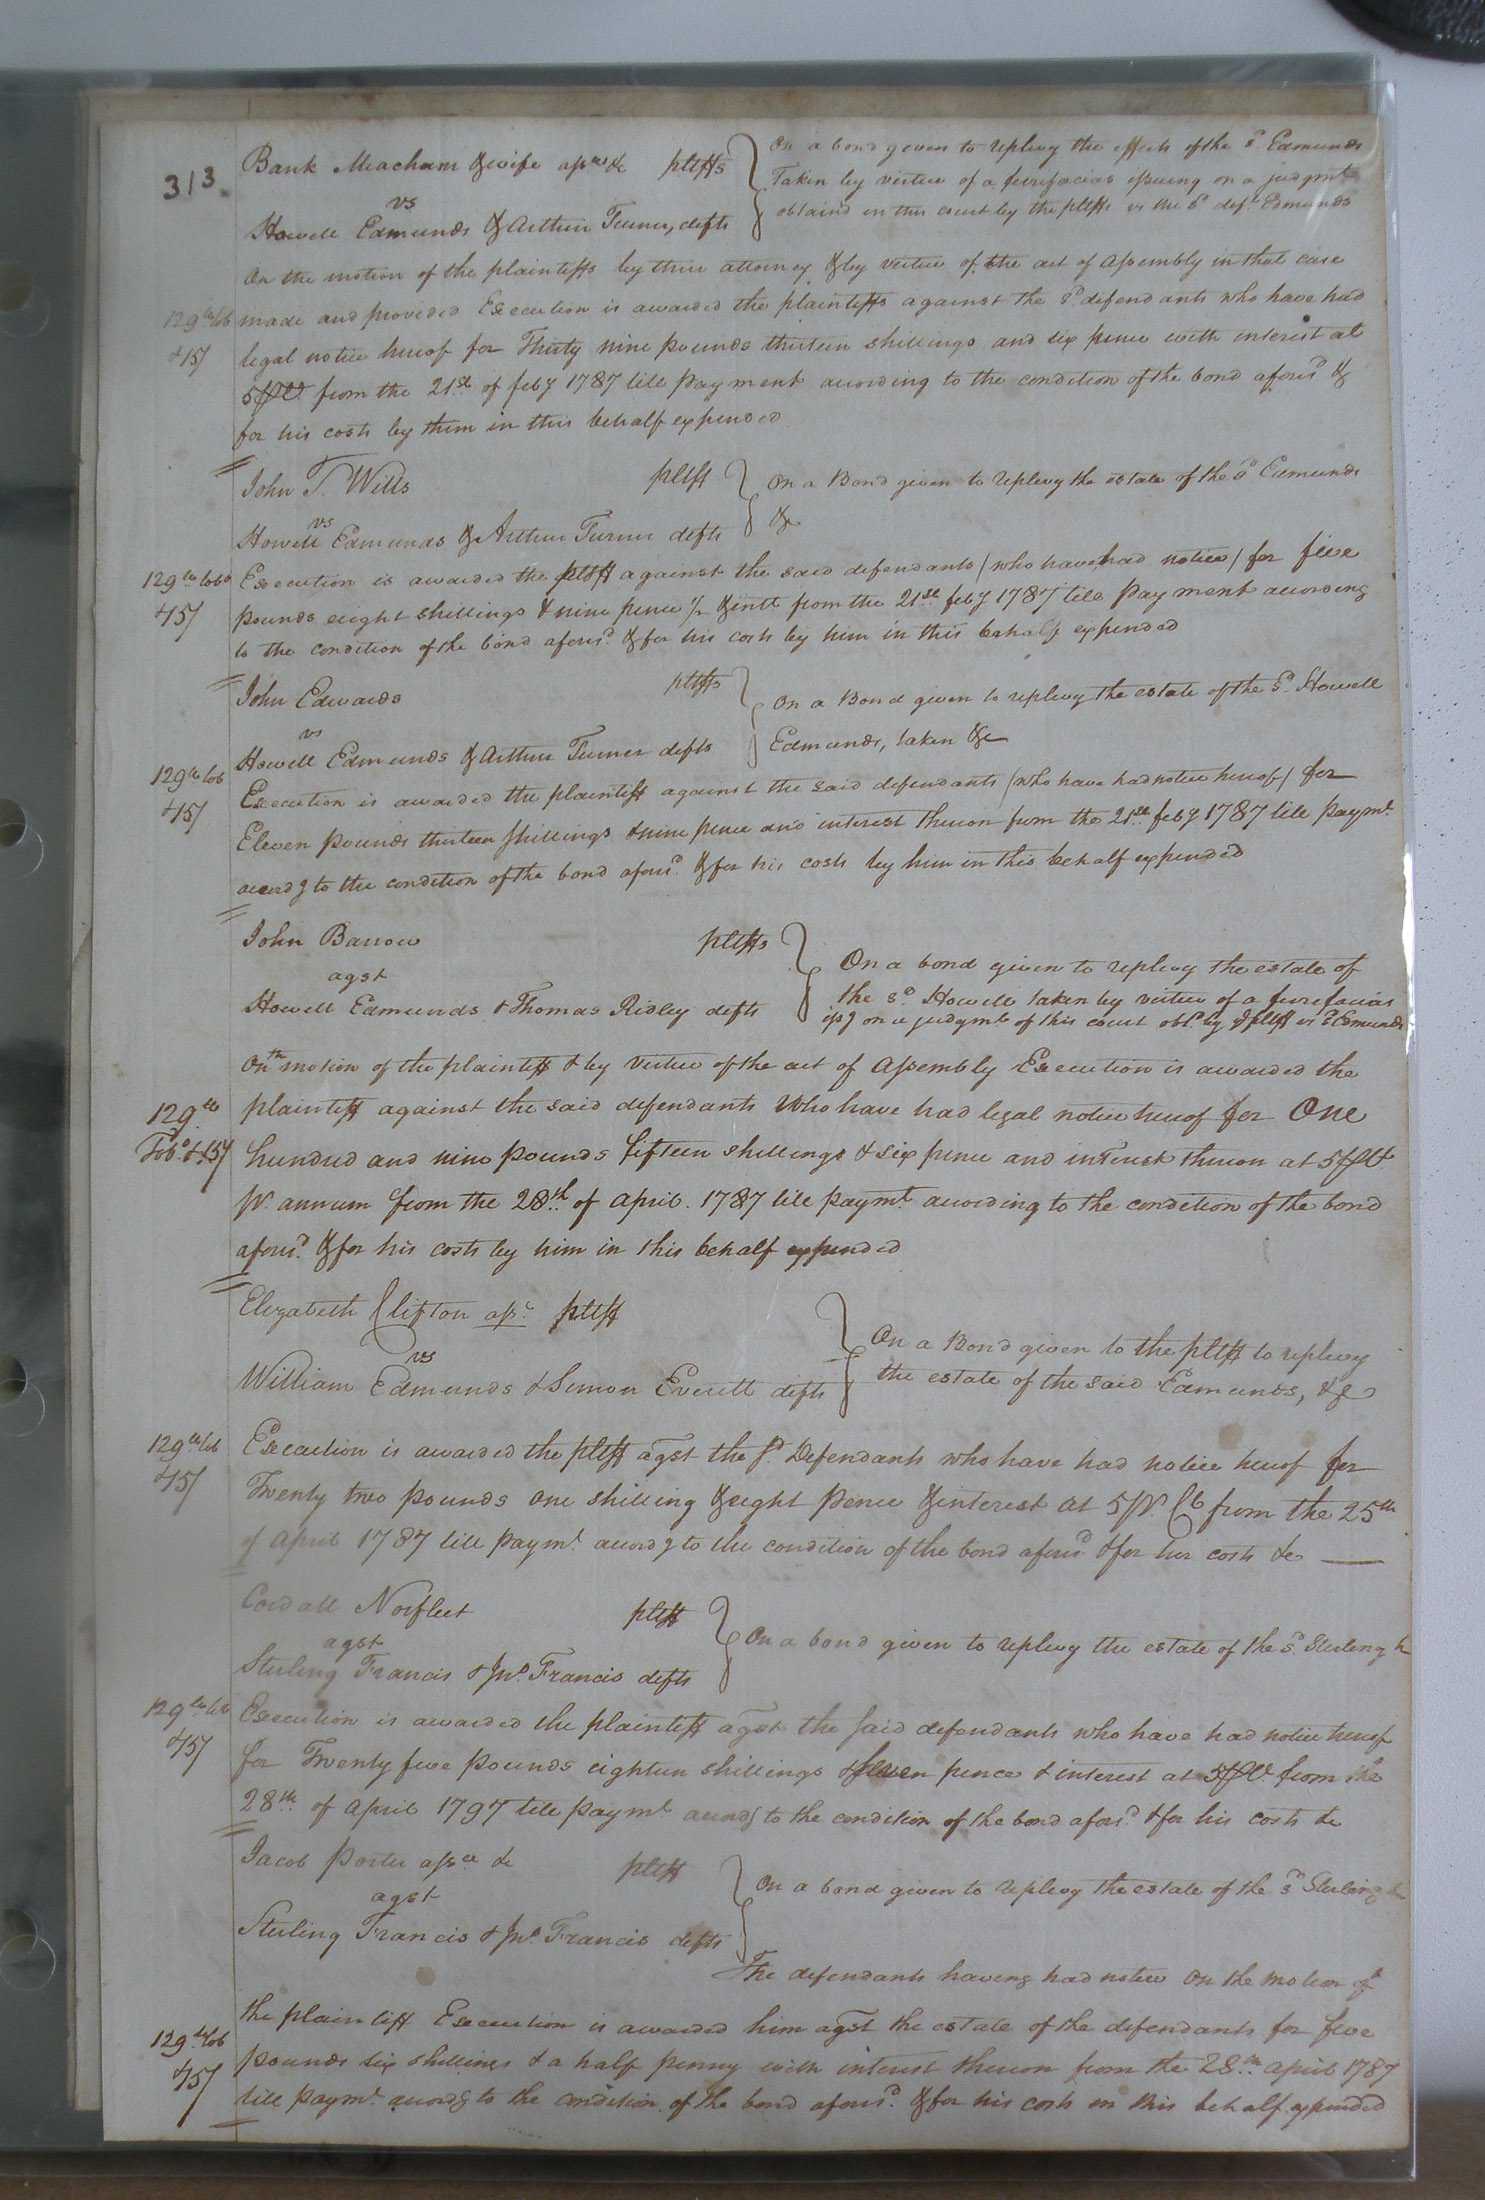 313.
Bank Meacham & wife assnee &c pltffs
On a bond given to replevy the effects of the sd. Edmunds
Taken by virtue of a fierefacias issuing on a judgmt
obtaind in this court by the pltffs vs the sd deft Edmunds
vs
Howell Edmunds & Arthur Turner, defts
On the motion of the plaintiffs by their attorney & by virtue of the act of Assembly in that case
129 lb tob made and provided Execution is awarded the plaintiffs against the sd defendants who have had
&15/ legal notice hereof for Thirty nine pounds thirteen shillings and six pence with interest at
5 from the 21st of feby 1787 till payment according to the condition of the bond aforesd &
for his costs by them in this behalf expended
John T. Wills pltff
On a Bond given to replevy the estate of the sd Edmunds
&c
vs
Howell Edmunds & Arthur Turner defts
129 lb tobo Execution is awarded the pltff against the said defendants (who have had notice) for five
&15/ pounds eight shillings & nine pence ½ & intt from the 21st feby 1787 till payment according
to the condition of the bond aforesd. & for his costs by him in this behalf expended
John Edwards pltffs
On a Bond given to replevy the estate of the sd. Howell
Edmunds, taken &c
vs
Howell Edmunds & Arthur Turner defts
129 lb tob Execution is awarded the plaintiff against the said defendants (who have had notice hereof) for
&15/ Eleven pounds thirteen shillings & nine pence and interest thereon from the 21st feby 1787 till paymt.
accordg to the condition of the bond aforesd. & for his costs by him in this behalf expended
John Barrow pltffs
agst
On a bond given to replevy the estate of
the sd. Howell taken by virtue of a fierefacias
issg on a judgmt of this court obt. by pltff vs sd Edmunds
Howell Edmunds & Thomas Ridley defts
On th motion of the plaintiff & by virtue of the act of Assembly Execution is awarded the
129 lb plaintiff against the said defendants Who have had legal notice hereof for One
Tobo. & 15/ hundred and nine pounds fifteen shillings & six pence and interest thereon at 5
pr. annum from the 28th of April. 1787 till paymt according to the condition of the bond
aforesd. & for his costs by him in this behalf expended
Elizabeth Clifton asse. pltff
vs
On a Bond given to the pltff to replevy
the estate of the said Edmunds, &c
William Edmunds & Simon Everett defts
129 lb tob Execution is awarded the pltff agst the sd. Defendants who have had notice hereof for
&15/ Twenty two pounds one shilling & eight pence & interest at 5 pr. Ct from the 25th
of April 1787 till paymt. accordg to the condition of the bond aforesd & for her costs &c
Cordall Norfleet pltff
agst
On a bond given to replevy the estate of the sd. Sterling &
Sterling Francis & Jno. Francis defts
129 lb tob Execution is awarded the plaintiff agst the said defendants who have had notice hereof
&15/ for Twenty five pounds eighteen shillings & seven pence & interest at 5 from the
28th of April 1797 till paymt accordg to the condition of the bond aforesd & for his costs &c
Jacob Porter assnee &c pltff
agst
On a bond given to replevy the estate of the sd Sterling &
Sterling Francis & Jno. Francis defts
The defendants having had notice On the motion of
the plaintiff Execution is awarded him agst the estate of the defendants for five
129 lb tob pounds six shillings & a half penny with interest thereon from the 28th april 1787
&15/ till paymt. accordg to the condition of the bond aforesd. & for his costs in this behalf expended